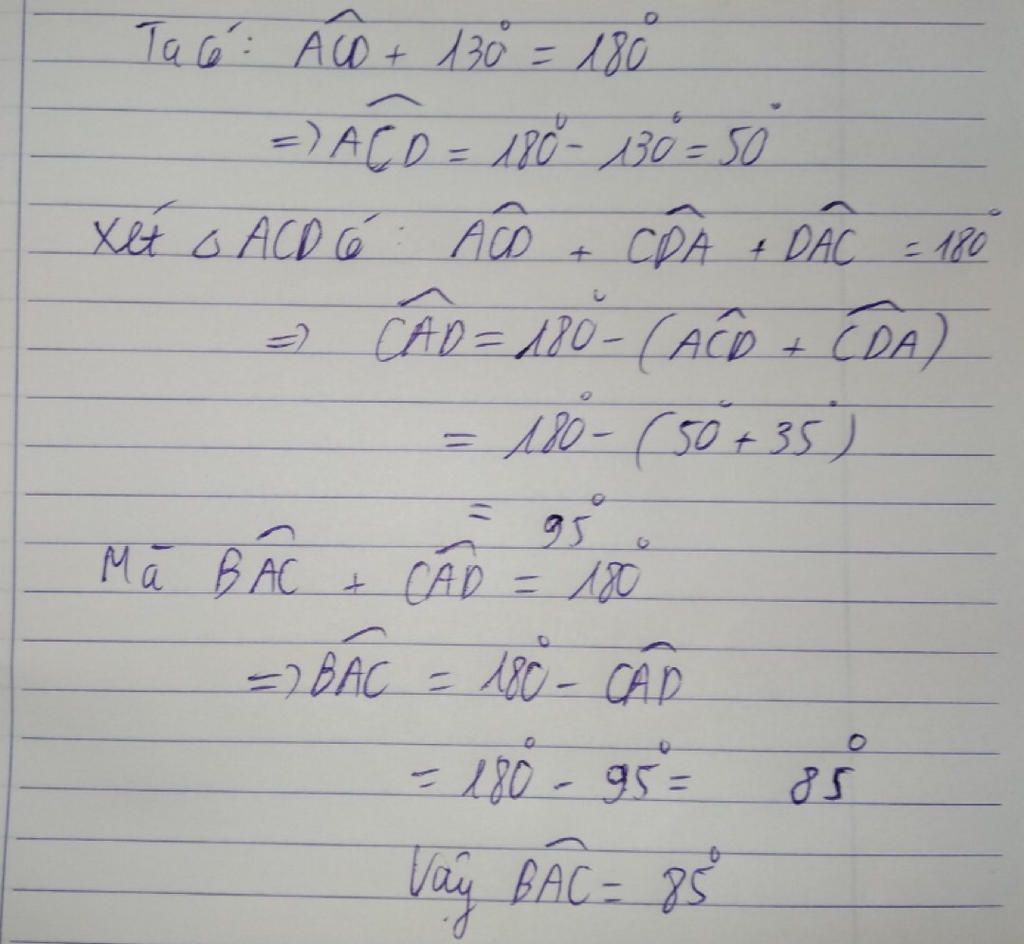 Ta có: ACD̂ + 130° = 180°
=> ACD̂ = 180° - 130° = 50°
Xét △ ACD có: ACD̂ + CDÂ + DAĈ = 180°
=> CAD̂ = 180° - (ACD̂ + CDÂ)
= 180° - (50° + 35°)
= 95°
Mà BAĈ + CAD̂ = 180°
=> BAĈ = 180° - CAD̂
= 180° - 95° = 85°
Vậy BAĈ = 85°